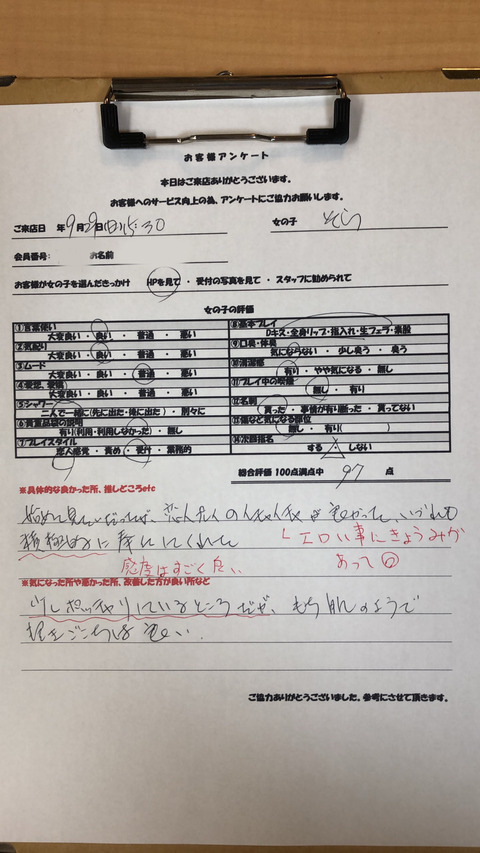 お客様アンケート
本日はご来店ありがとうございます。
お客様へのサービス向上の為、アンケートにご協力お願いします。
ご来店日 年9月29日(日)15:30 女の子 そら
会員番号: お名前
お客様が女の子を選んだきっかけ HPを見て ・ 受付の写真を見て ・ スタッフに勧められて
女の子の評価
①言葉使い
大変良い ・ 良い ・ 普通 ・ 悪い
②気配り
大変良い ・ 良い ・ 普通 ・ 悪い
③ムード
大変良い ・ 良い ・ 普通 ・ 悪い
④愛想、愛嬌
大変良い ・ 良い ・ 普通 ・ 悪い
⑤シャワー
二人で一緒に(先に出た・後に出た) ・ 別々に
⑥貴重品袋の説明
有り(利用・利用しなかった) ・ 無し
⑦プレイスタイル
恋人感覚 ・ 責め ・ 受付 ・ 業務的
⑧基本プレイ
Dキス・全身リップ・指入れ・生フェラ・素股
⑨口臭・体臭
気にならない ・ 少し臭う ・ 臭う
⑩清潔感
有り ・ やや気になる ・ 無し
⑪プレイ中の
無し ・ 有り
⑫名刺
貰った ・ 事情が有り断った ・ 貰ってない
⑬傷など気になる部位
無し ・ 有り( )
⑭次回指名
する ・ しない
総合評価 100点満点中 97 点
※具体的な良かった所、推しどころetc
始めて
積極的に
エロい事にきょうみが
感度はすごく良い
あって
※気になった所や悪かった所、改善した方が良い所など
少しポッチャリしているところだが、もち肌のようで
ご協力ありがとうございました。参考にさせて頂きます。